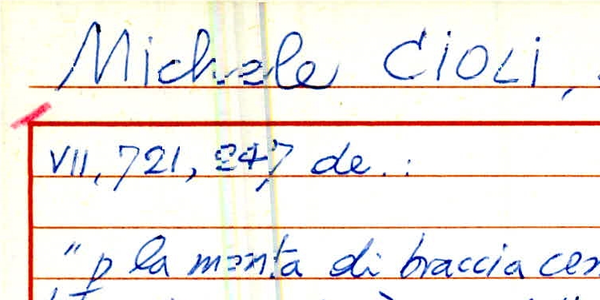 Michele CIOLI,
VII, 721, 247 de..:
"p la monta di braccia cen